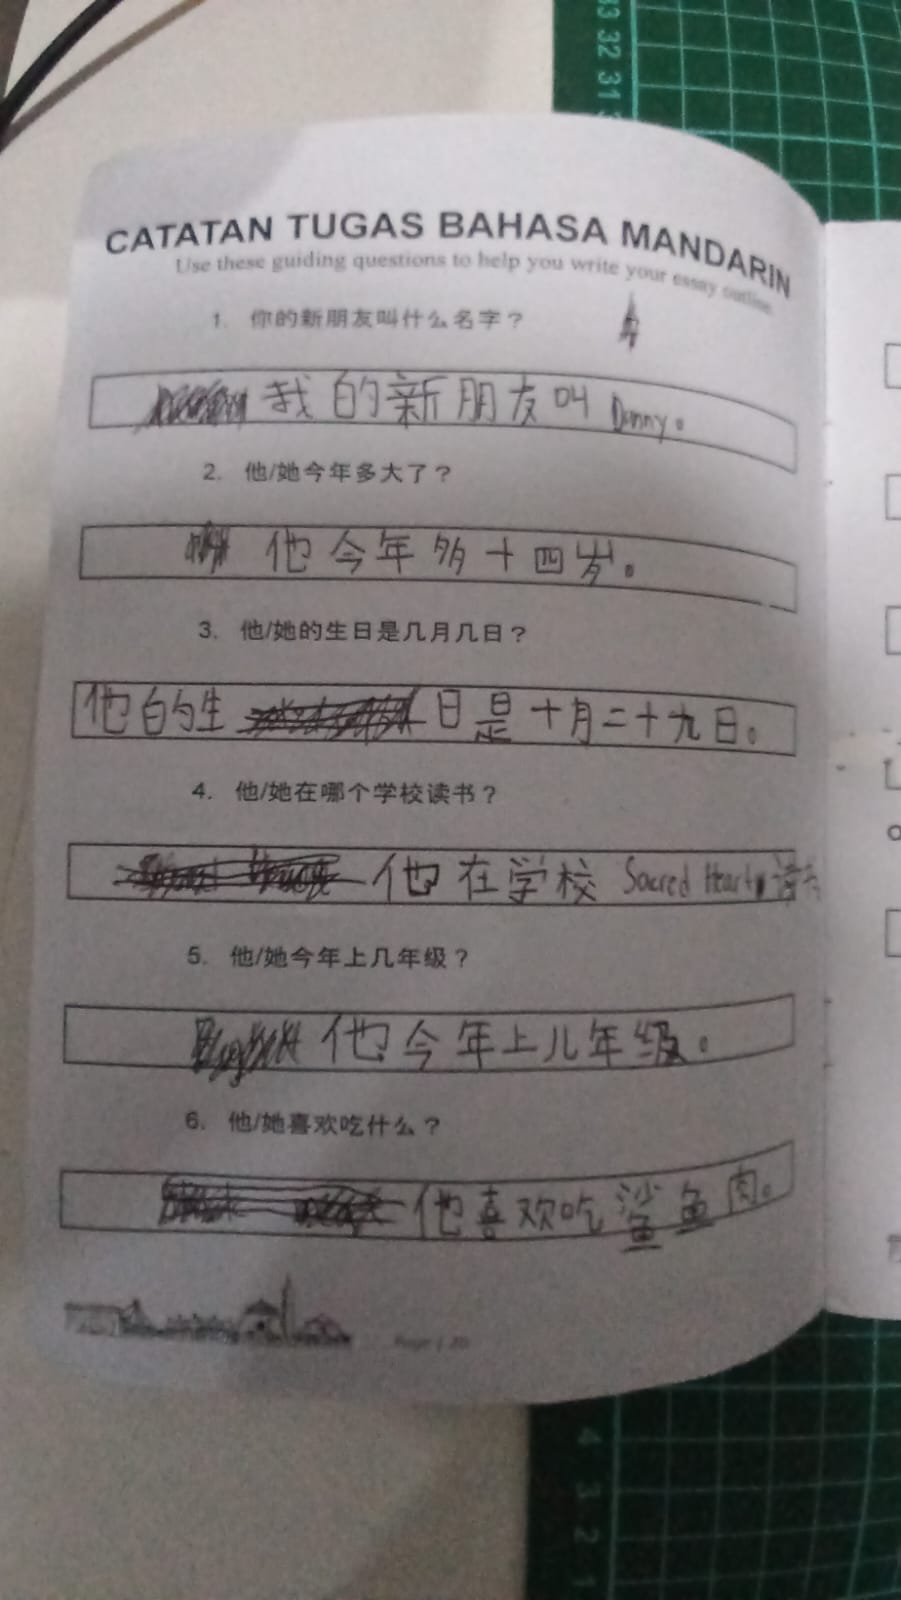 CATATAN TUGAS BAHASA MANDARIN
Use these guiding questions to help you write your essay outline.
1. 你的新朋友叫什么名字？
我的新朋友叫 Danny。
2. 他/她今年多大了？
他今年多十四岁。
3. 他/她的生日是几月几日？
他的生日是十月二十九日。
4. 他/她在哪个学校读书？
他在学校 Sacred Heart 读书
5. 他/她今年上几年级？
他今年上儿年级。
6. 他/她喜欢吃什么？
他喜欢吃鲨鱼肉。
Page | 20
33 32 31
4 3 2 1